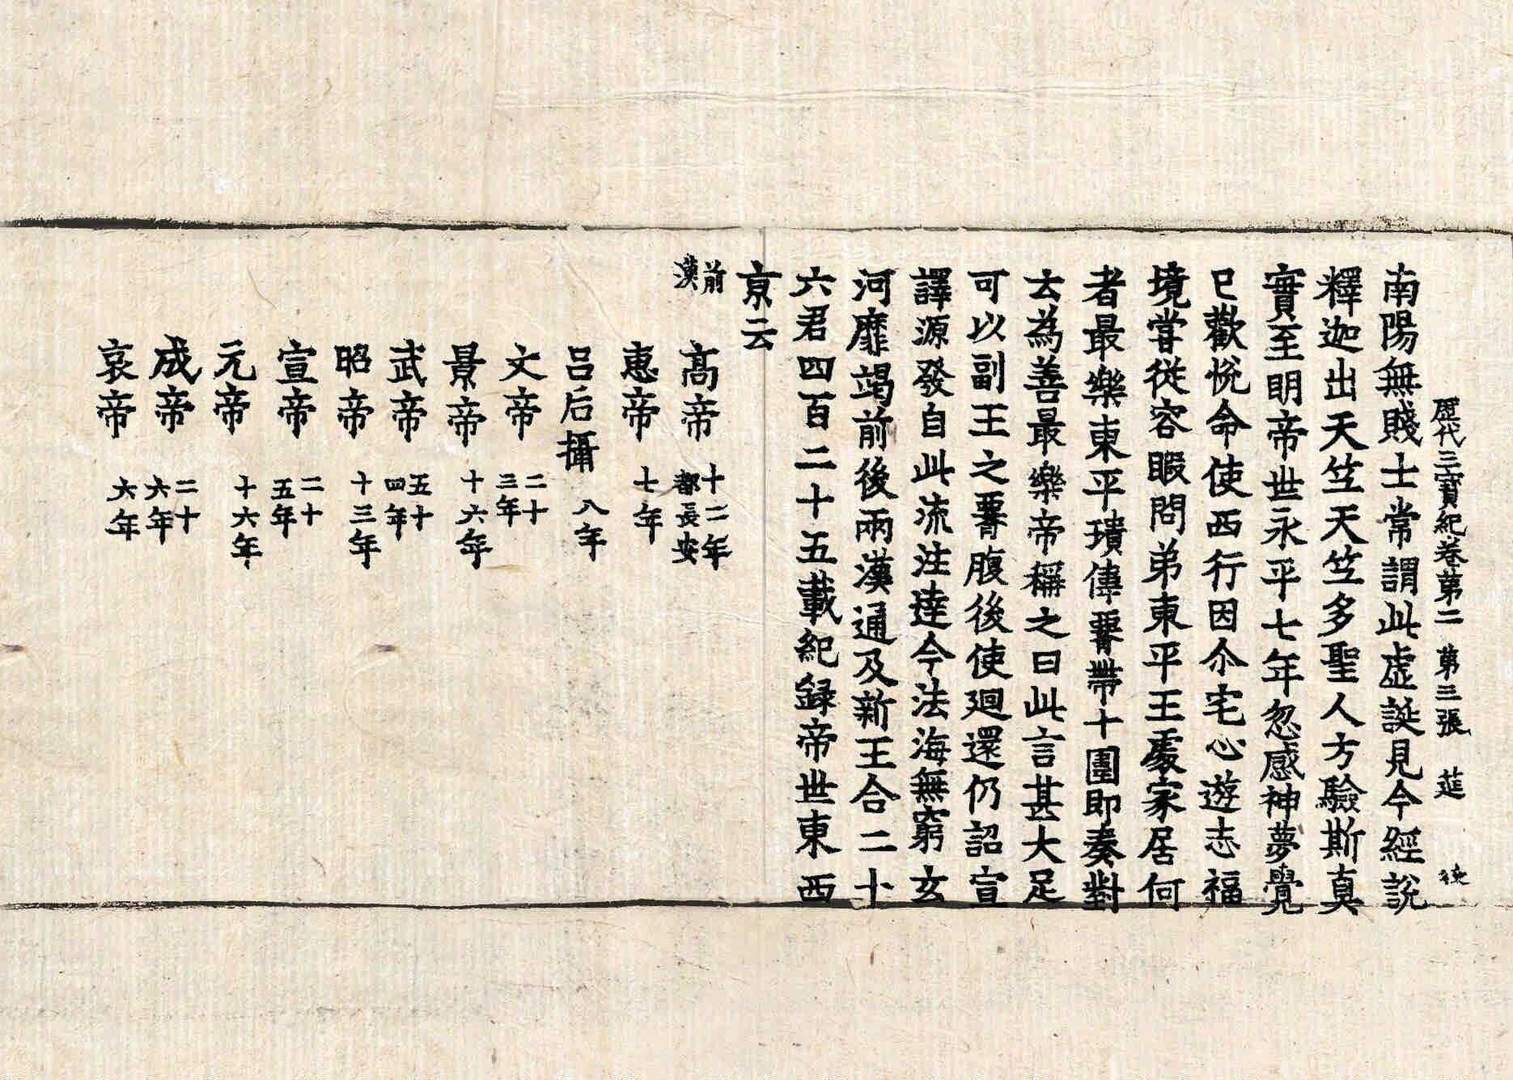 歷代三寶紀卷第二 第三張 莚 後
南陽無賤士常謂此虛誕見今經說
釋迦出天竺天竺多聖人方驗斯真
實至明帝世永平七年忽感神夢覺
已歡悅命使西行因尒宅心遊志福
境甞從容暇問弟東平王處家居何
者最樂東平璝傳署帶十圍即奏對
云為善最樂帝稱之曰此言甚大足
可以副王之署腹後使迴還仍詔宣
譯源發自此流注達今法海無窮玄
河靡竭前後兩漢通及新王合二十
六君四百二十五載紀録帝世東西
京云
前漢
高帝 十二年都長安
惠帝 七年
吕后攝 八年
文帝 二十三年
景帝 十六年
武帝 五十四年
昭帝 十三年
宣帝 二十五年
元帝 十六年
成帝 二十六年
哀帝 六年